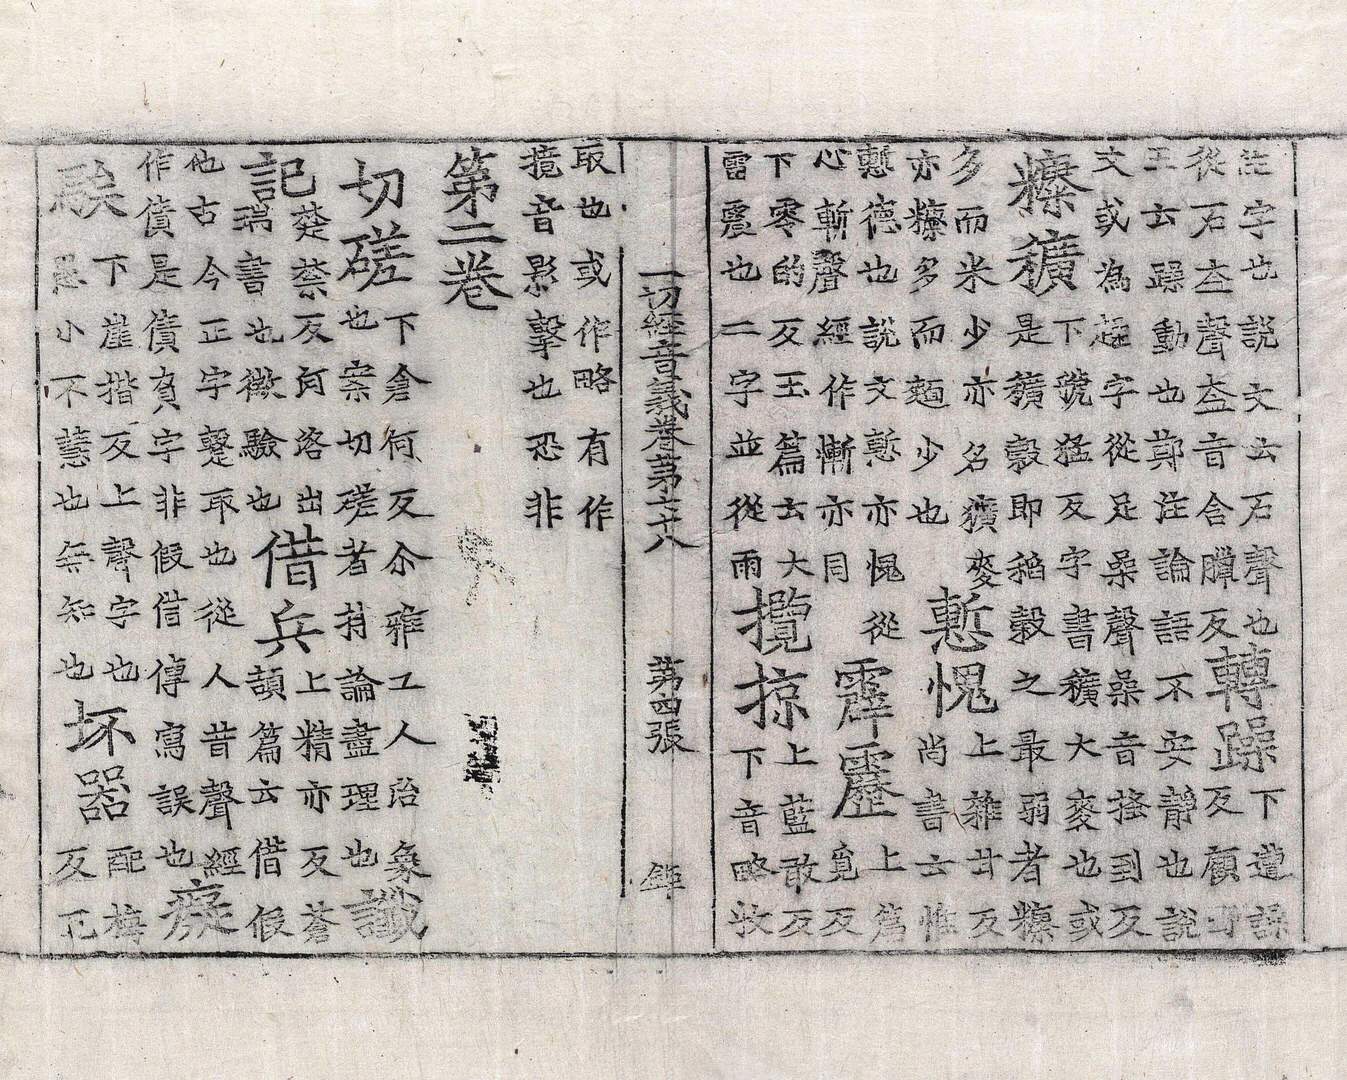 注字也說文云石聲也
從石盍聲盍音合臘反
轉躁
下遭譟
反顧野
王云躁動也鄭注論語不安靜也說
文或為趮字從足喿聲喿音掻到反
糠穬
下虢猛反字書穬大麥也或
是穬穀即稻穀之最弱者糠
多而米少亦名穬麥
亦糠多而麵少也
慙愧
上雜甘反
尚書云惟
慙德也說文慙亦愧從
心斬聲經作慚亦同
霹靂
上篇
覓反
下零的反玉篇云大
雷震也二字並從雨
攬掠
上藍敢反
下音略牧
取也或作略有作
撗音影擊也恐非
一切經音義卷第六十八 第四張 鉅
第二卷
切磋
下倉何反尒雅工人治象
也案切磋者捔論盡理也
讖
記
楚禁反河洛出
瑞書也徵驗也
借兵
上精亦反蒼
頡篇云借假
他古今正字躄取也從人昔聲經
作債是債負字非假借傳寫誤也
癡
騃
下崖揩反上聲字也
愚小不慧也無知也
坏器
配梅
反瓦